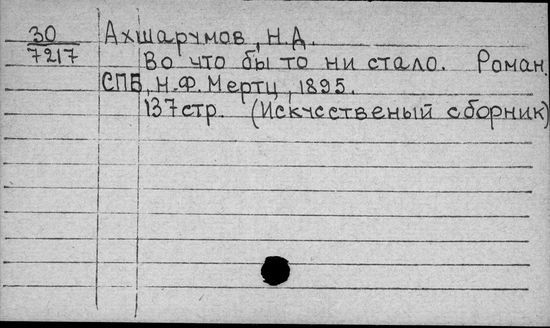 30 Ахшарумов, Н.Д.
7217 Во что бы то ни стало. Роман.
СПБ, Н.Ф. Мертц, 1895.
137стр. (Искусственый сборник)